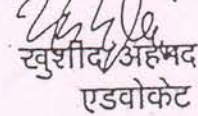 खुर्शीद अहमद
एडवोकेट